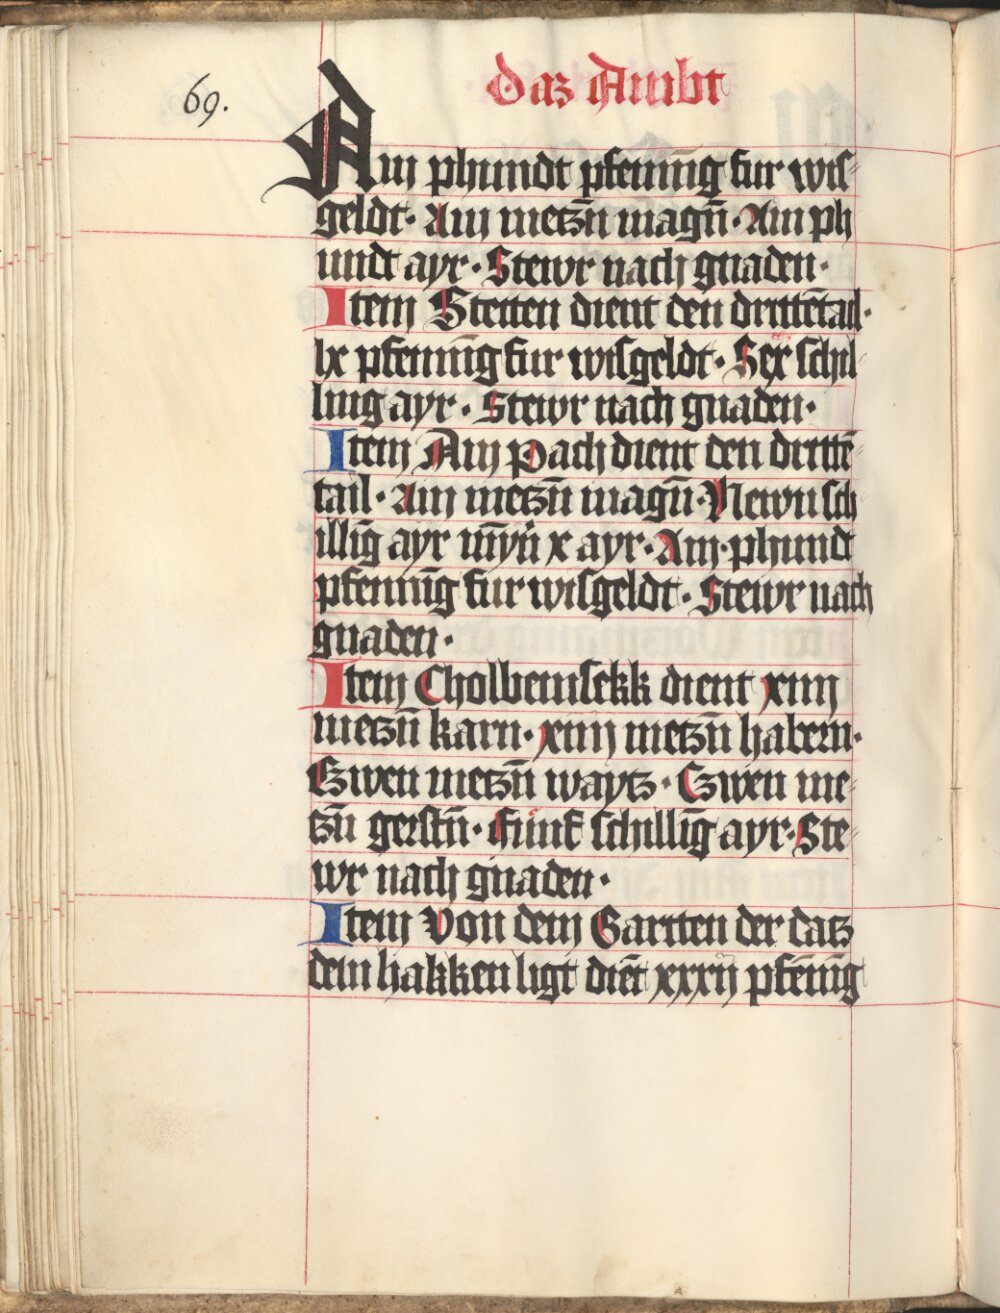 daz Ambt
69.
Ain phundt pfenni̅g fur wis-
geldt · Ain metzn̅ magn̅ · Ain ph
undt ayr · Stewr nach gnaden ·
Item Stetten dient den dritte̅tail ·
lx pfenni̅g fur wisgeldt · Sex schil
ling ayr · Stewr nach gnaden ·
Item Am pach dient den dritte̅
tail · Ain metzn̅ magn̅ · Newn sch
illi̅g ayr my̅n x ayr · Ain phundt
pfenni̅g fur wisgeldt · Stewr nach
gnaden ·
Item Cholbemsekk dient xiiij
metzn̅ karn · xiiij metzn̅ habern ·
Czwen metzn̅ waytz · Czwen me-
tzn̅ gerstn̅ · Funf schilli̅g ayr · Ste-
wr nach gnaden ·
Item Von dem Gartten der datz
dem hakken ligt die̅t xxxij pfe̅ni̅g